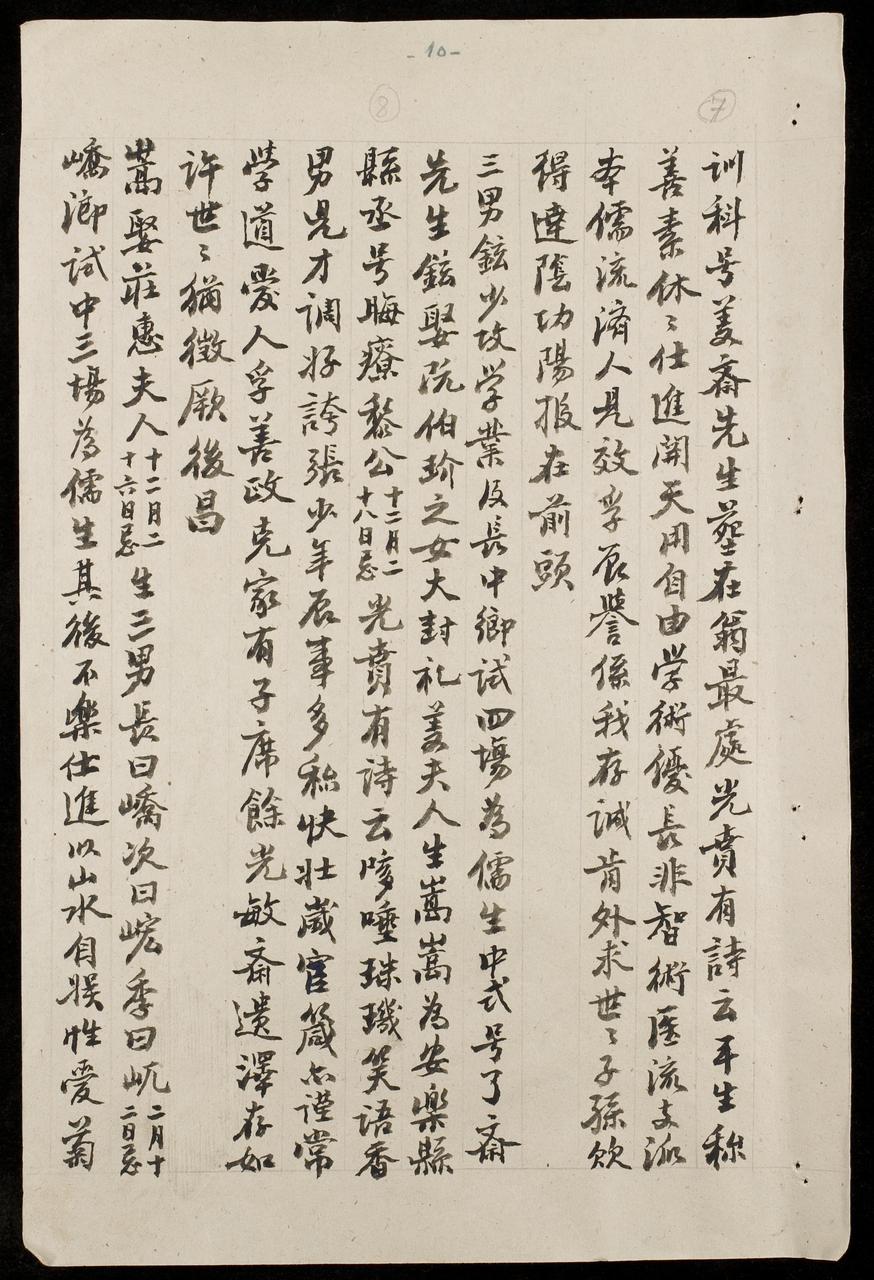 -10-
⑦
⑧
訓科号美齋先生墓在翁最處光賁有詩云平生称
善素休〻仕進開天用自由学術優長非智術医流支派
夲儒流濟人見效孚辰譽係我存誠肯外求世〻子孫欽
得達陰功陽报在前頭
三男鉉少攻学業及長中鄉試四塲為儒生中式号了齋
先生鉉娶阮伯玠之女大封礼姜夫人生嵩嵩為安樂縣
縣丞号晦療黎公十二月二十八日忌光賁有詩云咳唾珠璣笑語香
男児才調好誇張少年辰事多称快壮歲官箴亦謹常
學道愛人孚善政克家有子席餘光敏齋遺澤存如
許世〻猶徵厥後昌
嵩娶莊惠夫人十二月二十六日忌生三男長曰嶠次曰峵季曰屼二月十二日忌
嶠鄉試中三塲為儒生其後不樂仕進以山水自娱性愛菊